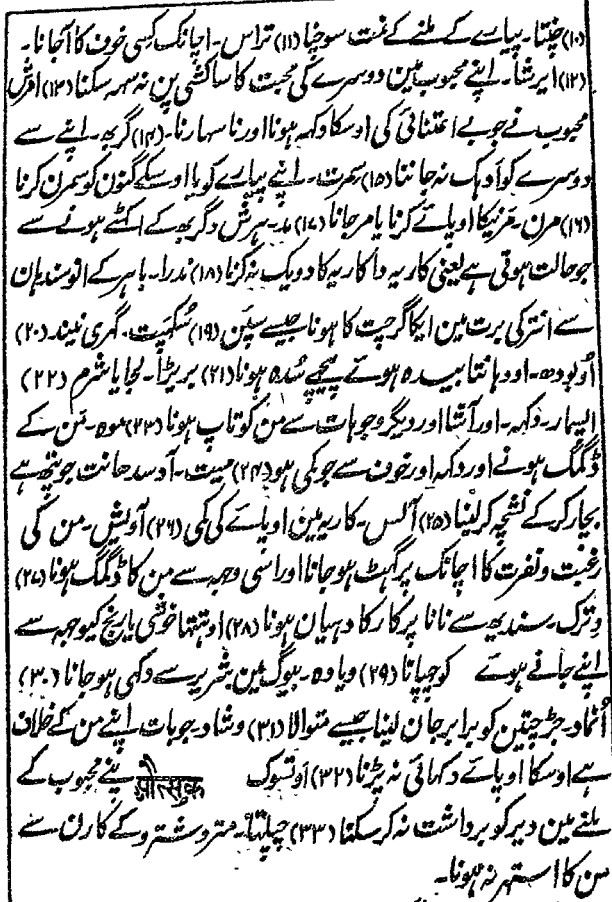 (۱۰) چنتا۔ پیارے کے ملنے کے نمت سوچنا (۱۱) تراس۔ اچانک کسی خوف کا آجانا۔
(۱۲) ایرشا۔ اپنے محبوب مین دوسرے کی محبت کا ساکشی پن نہ سہہ سکنا (۱۳) امرش
محبوب نے جو بے اعتنائی کی اوسکا دکہہ ہونا اور نا سہارنا۔ (۱۴) گربھ۔ اپنے سے
دوسرے کو ادہک نہ جاننا (۱۵) سمرت۔ اپنے پیارے کو یا اوسکے گنون کو سمرن کرنا
(۱۶) مرن۔ مرنیکا اوپائے کرنا یا مر جانا (۱۷) مد۔ ہرش و گربھ کے اکٹھے ہونے سے
جو حالت ہوتی ہے یعنی کاریہ و اکاریہ کا دویک نہ کرنا (۱۸) ندرا۔ باہر کے انوسندہان
سے انتر کی برت مین ایکاگرچت کا ہونا جیسے سپن (۱۹) سکھپت۔ گہری نیند (۲۰)
اوبودھ۔ اودہانتا بیسدہ ہوئے پیچھے سُدہ ہونا (۲۱) بریڑا۔ لجا یا شرم (۲۲)
اپسمار۔ دکہہ۔ اور آشا اور دیگر وجوہات سے من کو تاپ ہونا (۲۳) موہ۔ من کے
ڈگمگ ہونے اور دکہہ اور خوف سے جو کمی ہو (۲۴) میت۔ آدسدھانت جو پتھہ ہے
بچار کرکے نشچہ کرلینا (۲۵) آلس۔ کاریہ مین اوپائے کی کمی (۲۶) آویش۔ من کی
رغبت و نفرت کا اچانک پرگہٹ ہوجانا اور اسی وجہہ سے من کا ڈگمگ ہونا (۲۷)
وترک۔ سندیھ سے نانا پرکار کا دہیان ہونا (۲۸) اوتہتہا خوشی یا رنج کیوجہہ سے
اپنے جانے ہوئے کو چھپانا (۲۹) ویادہ۔ بیوگ مین شریر سے دکہی ہوجانا (۳۰)
اُنماد۔ جڑ چیتن کو برابر جان لینا جیسے متوالا (۳۱) وشاد۔ جو بات اپنے من کے خلاف
ہے اوسکا اوپائے دکہائی نہ پڑنا (۳۲) اوتسوک औत्सुक اپنے محبوب کے
ملنے مین دیر کو برداشت نہ کرسکنا (۳۳) چپلتا۔ متر و شترو کے کارن سے
من کا استہر نہ ہونا۔